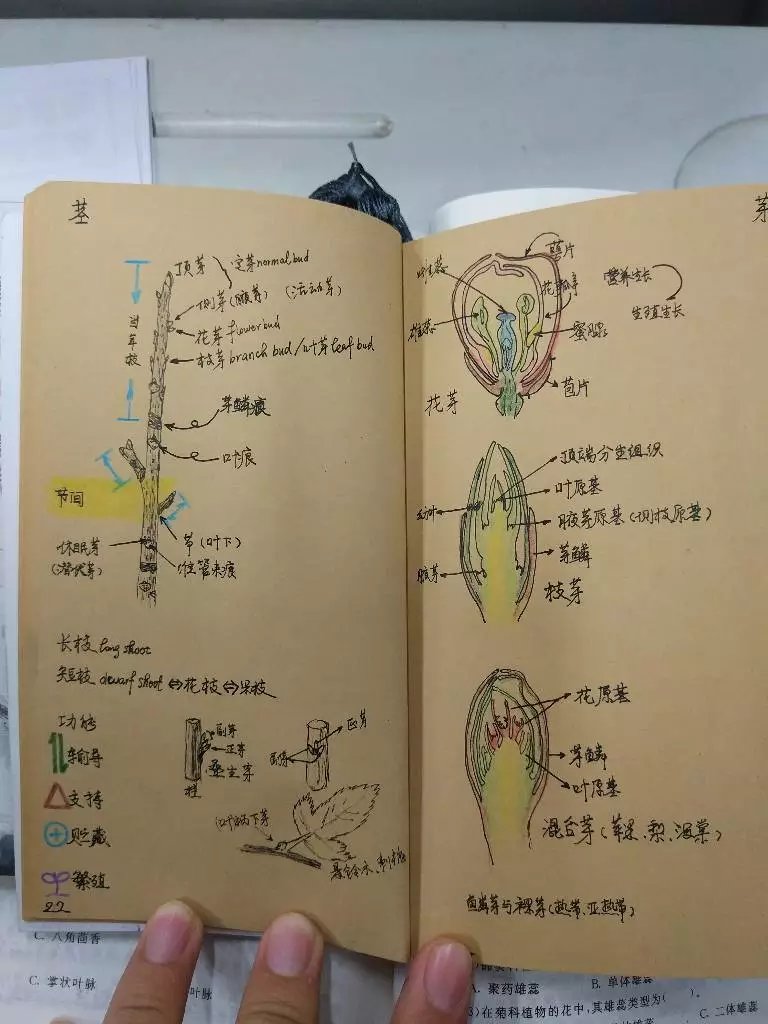 茎
顶芽
定芽 normal bud
侧芽(腋芽) (活动芽)
花芽 flower bud
枝芽 branch bud / 叶芽 leaf bud
当年枝
芽鳞痕
叶痕
节间
节(叶下)
休眠芽
(潜伏芽)
维管束痕
长枝 long shoot
短枝 dwarf shoot ⇔花枝⇔果枝
功能
输导
支持
贮藏
繁殖
副芽
正芽
叠生芽
正芽
副芽
悬铃木
22
芽
萼片
雌蕊
花瓣
营养生长
生殖生长
雄蕊
蜜腺
苞片
花芽
顶端分生组织
叶原基
幼叶
腋芽原基(侧枝原基)
芽鳞
腋芽
枝芽
花原基
芽鳞
叶原基
混合芽(苹果、梨、海棠)
鳞芽与裸芽(热带、亚热带)
C. 八角茴香
C. 掌状叶脉
叶脉
A. 聚药雄蕊
B. 单体雄蕊
3)在菊科植物的花中,其雄蕊类型为( )。
C. 二体雄蕊